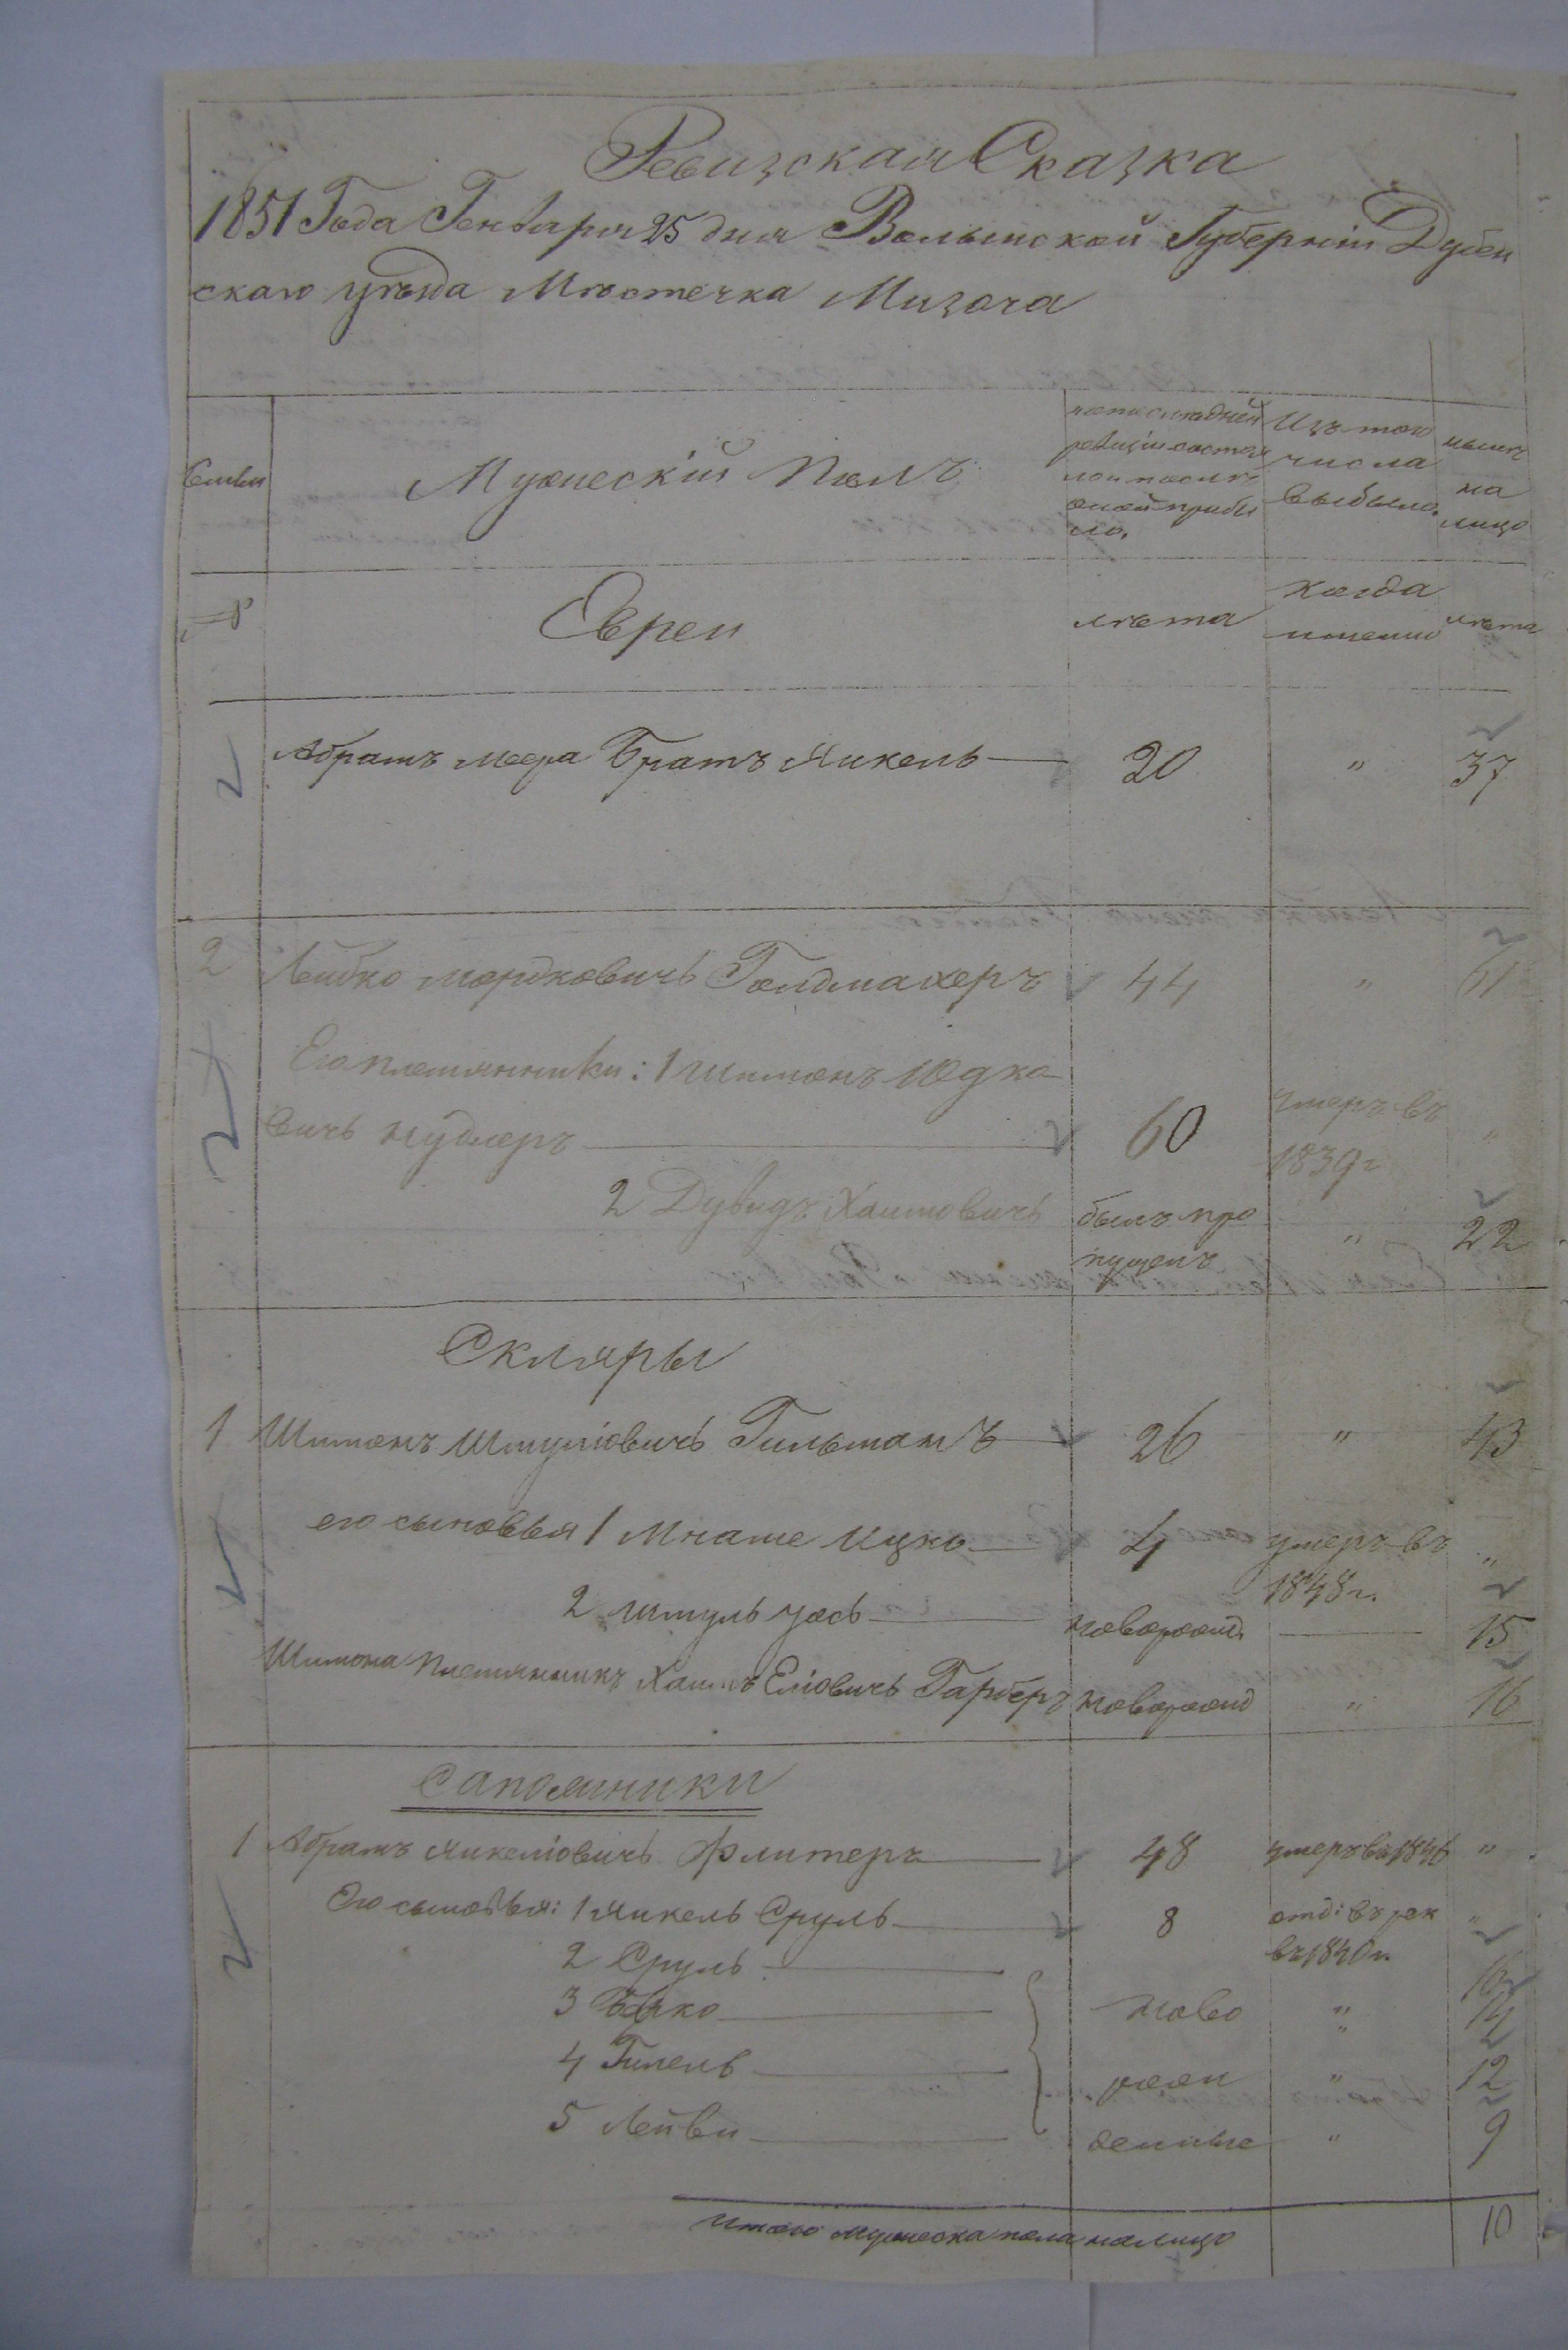 Ревизская Сказка
1851 Года Генваря 25 дня Волынской Губерніи Дубен
скаго уѣзда Мѣстечка Мизоча
Семьи
Мужескій полъ
по последней
ревизіи состоя
ло и после
оной прибы
ло.
Изъ того
числа
выбыло.
ныне
на
лицо
№
Евреи
лѣта
когда
именно
лѣта
Абрамъ Меера Братъ Янкель 20 " 37
2 Лейбко Мордковичь Голдмахеръ 44 " 61
Его племянники: 1 Шимонъ Юдко
вичь Нудлеръ 60 умеръ въ 1839 г "
2 Дувидъ Хаимовичь былъ про
пущенъ " 22
Скляры
1 Шимонъ Шмуліовичь Гильманъ 26 " 43
его сыновья 1 Мнаше Ицко 4 умеръ въ 1848 г. "
2 Шмуль Уось новорожд. 15
Шимона племянникъ Хаимъ Еліовичь Гарберъ новорожд " 16
Сапожники
1 Абрамъ Янкеліовичь Флитеръ 48 умеръ въ 1846 "
Его сыновья: 1 Янкель Сруль 8 отд: въ рек
въ 1840 г. "
2 Сруль 16
3 Ицко ново " 14
4 Гипель рож " 12
5 Лейви денные " 9
Итого мужеска пола налицо 10